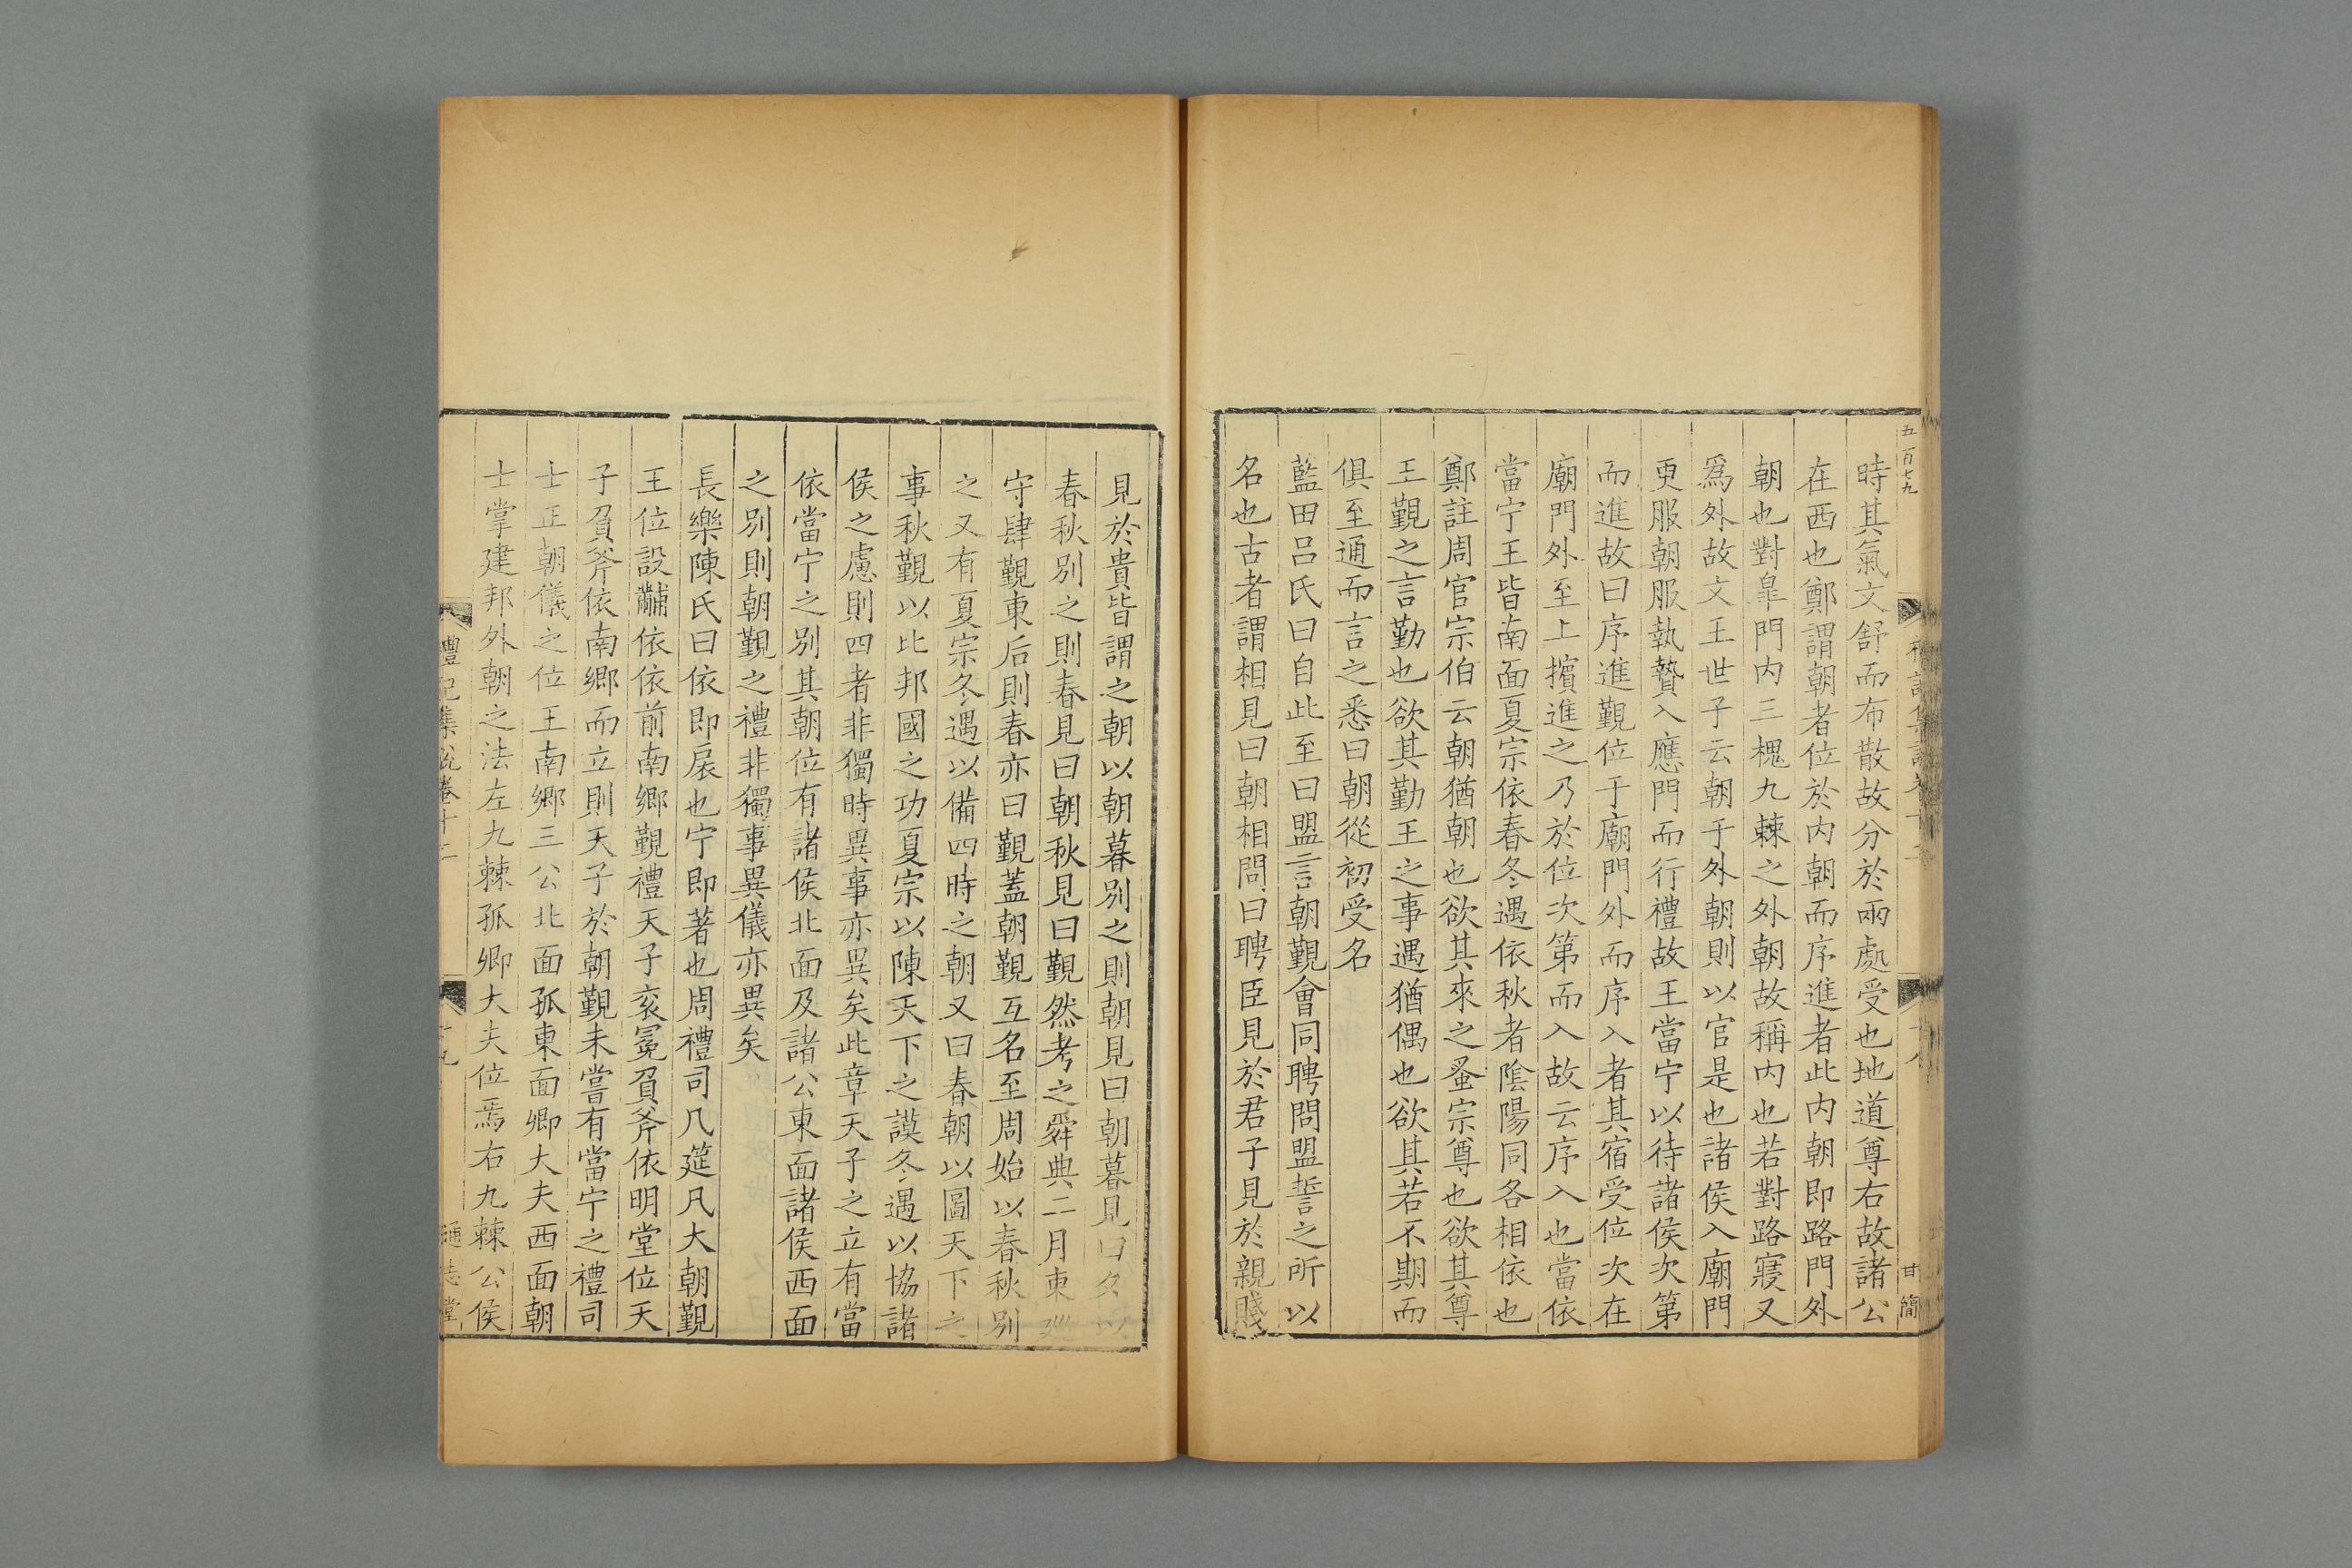 五百七九
時其氣文舒而布散故分於兩處受也地道尊右故諸公
在西也鄭謂朝者位於内朝而序進者此内朝即路門外
朝也對臯門内三槐九棘之外朝故稱内也若對路寢又
爲外故文王世子云朝于外朝則以官是也諸侯入廟門
更服朝服執贄入應門而行禮故王當宁以待諸侯次第
而進故曰序進覲位于廟門外而序入者其宿受位次在
廟門外至上擯進之乃於位次第而入故云序入也當依
當宁王皆南面夏宗依春冬遇依秋者隂陽同各相依也
鄭註周官宗伯云朝猶朝也欲其來之蚤宗尊也欲其尊
王覲之言勤也欲其勤王之事遇猶偶也欲其若不期而
俱至通而言之悉曰朝從初受名
藍田吕氏曰自此至曰盟言朝覲會同聘問盟誓之所以
名也古者謂相見曰朝相問曰聘臣見於君子見於親賤
甘簡
見於貴皆謂之朝以朝暮别之則朝見曰朝暮見曰夕以
春秋别之則春見曰朝秋見曰覲然考之舜典二月東廵
守肆覲東后則春亦曰覲蓋朝覲互名至周始以春秋别
之又有夏宗冬遇以備四時之朝又曰春朝以圖天下之
事秋覲以比邦國之功夏宗以陳天下之謨冬遇以協諸
侯之慮則四者非獨時異事亦異矣此章天子之立有當
依當宁之别其朝位有諸侯北面及諸公東面諸侯西面
之别則朝覲之禮非獨事異儀亦異矣
長樂陳氏曰依即扆也宁即著也周禮司几筵凡大朝覲
王位設黼依依前南鄉覲禮天子衮冕負斧依明堂位天
子負斧依南鄉而立則天子於朝覲未嘗有當宁之禮司
士正朝儀之位王南鄉三公北面孤東面卿大夫西面朝
士掌建邦外朝之法左九棘孤卿大夫位焉右九棘公侯
禮記集説卷十二
十九
通志堂